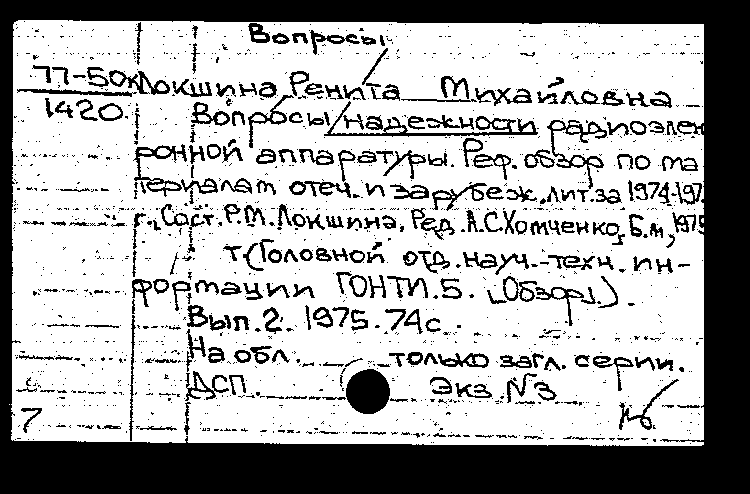 Вопросы
77-50к Локшина Ренита Михайловна
1420 Вопросы надежности радиоэлек
ронной аппаратуры. Реф. обзор по ма
териалам отеч. и зарубеж. лит. за 1974-197
г., Сост. Р.М. Локшина, Ред. А.С. Хомченко, Б.м., 1975
т (Головной отд. науч.-техн. ин-
формации ГОНТИ.5. (Обзоры).
Вып. 2. 1975. 74с.
На обл. только загл. серии.
ДСП. Экз. №3
7